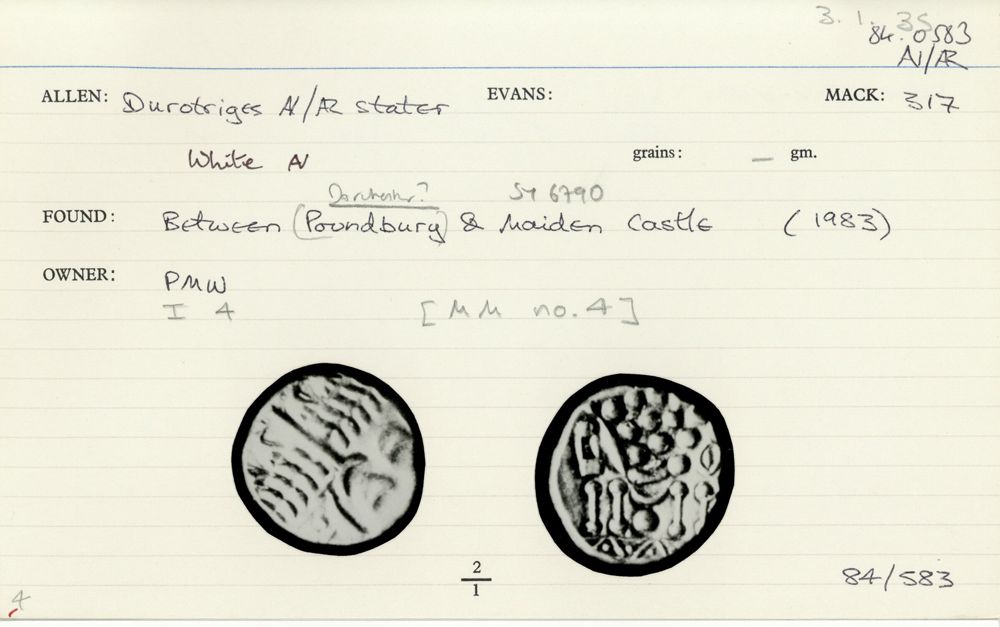 3. 1. 35
84.0583
AV/AR
ALLEN: Durotriges AV/AR stater EVANS: MACK: 317
White AV grains: — gm.
Dorchester? SY 6790
FOUND: Between (Poundbury) & Maiden Castle (1983)
OWNER: PMW
I 4 [MM no. 4]
2
1
84/583
4